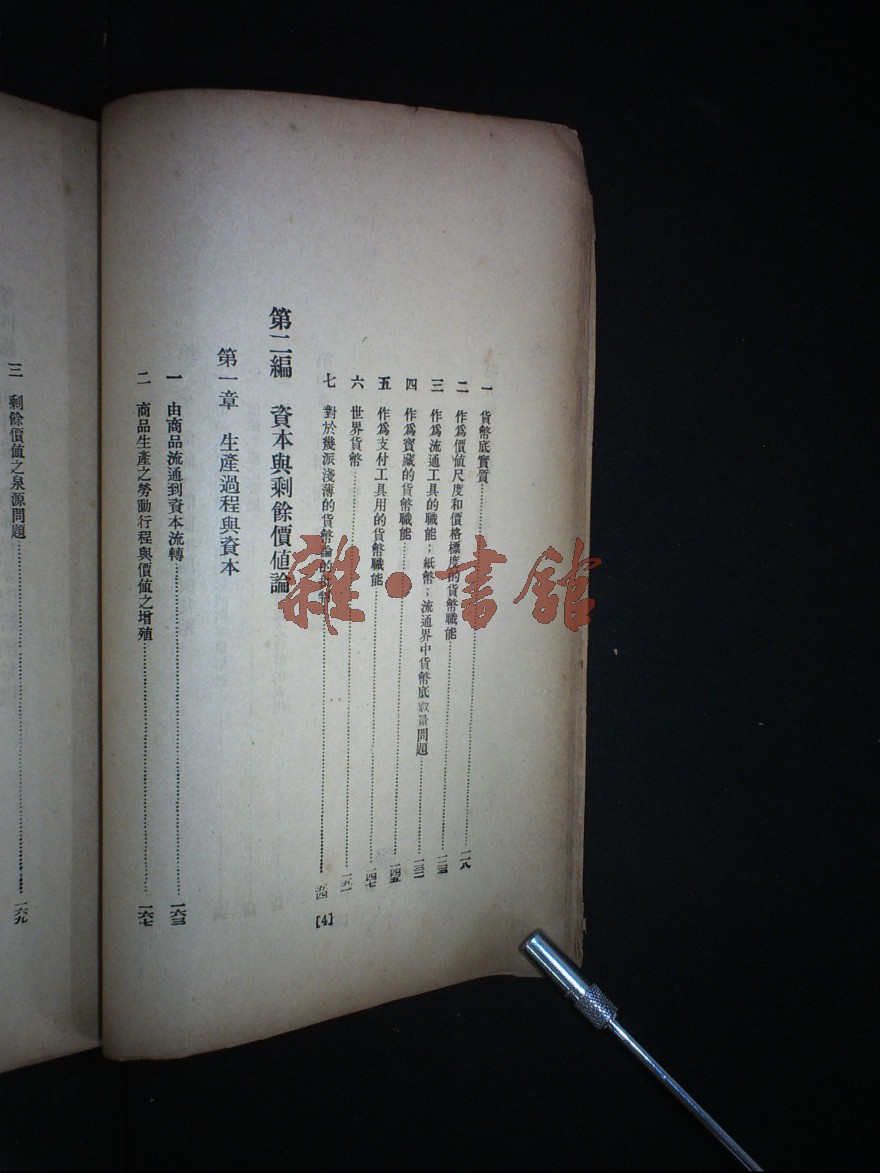 一 貨幣底實質……一一八
二 作爲價値尺度和價格標度的貨幣職能……一二五
三 作爲流通工具的職能；紙幣；流通界中貨幣底數量問題……一三二
四 作爲寶藏的貨幣職能……一四五
五 作爲支付工具用的貨幣職能……一四七
六 世界貨幣……一五一
七 對於幾派淺薄的貨幣論的……五四
[4]
第二編 資本與剩餘價値論
第一章 生產過程與資本
一 由商品流通到資本流轉……一六三
二 商品生產之勞動行程與價値之增殖……一六七
三 剩餘價値之泉源問題……一六九
雜·書館